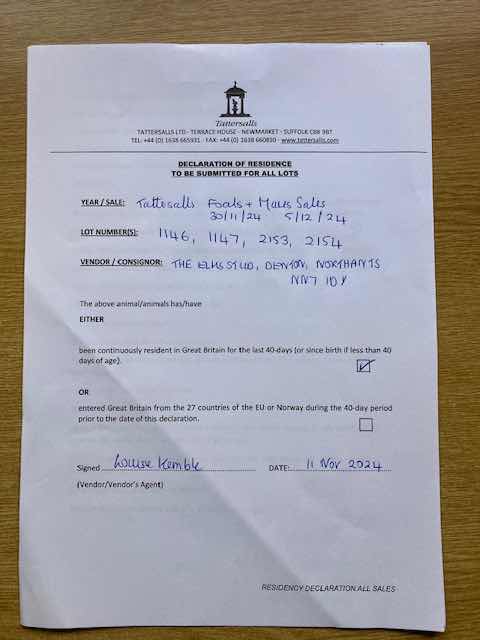 Tattersalls
TATTERSALLS LTD · TERRACE HOUSE · NEWMARKET · SUFFOLK CB8 9BT
TEL: +44 (0) 1638 665931 · FAX: +44 (0) 1638 660850 · www.tattersalls.com
DECLARATION OF RESIDENCE
TO BE SUBMITTED FOR ALL LOTS
YEAR / SALE: Tattesalls Foals + Mares Sales
30/11/24 5/12/24
LOT NUMBER(S): 1146, 1147, 2153, 2154
VENDOR / CONSIGNOR: THE ELMS STUD, DENTON, NORTHANTS
NN7 1DY
The above animal/animals has/have
EITHER
been continuously resident in Great Britain for the last 40-days (or since birth if less than 40
days of age).
OR
entered Great Britain from the 27 countries of the EU or Norway during the 40-day period
prior to the date of this declaration.
Signed Louise Kemble DATE: 11 Nov 2024
(Vendor/Vendor's Agent)
RESIDENCY DECLARATION ALL SALES